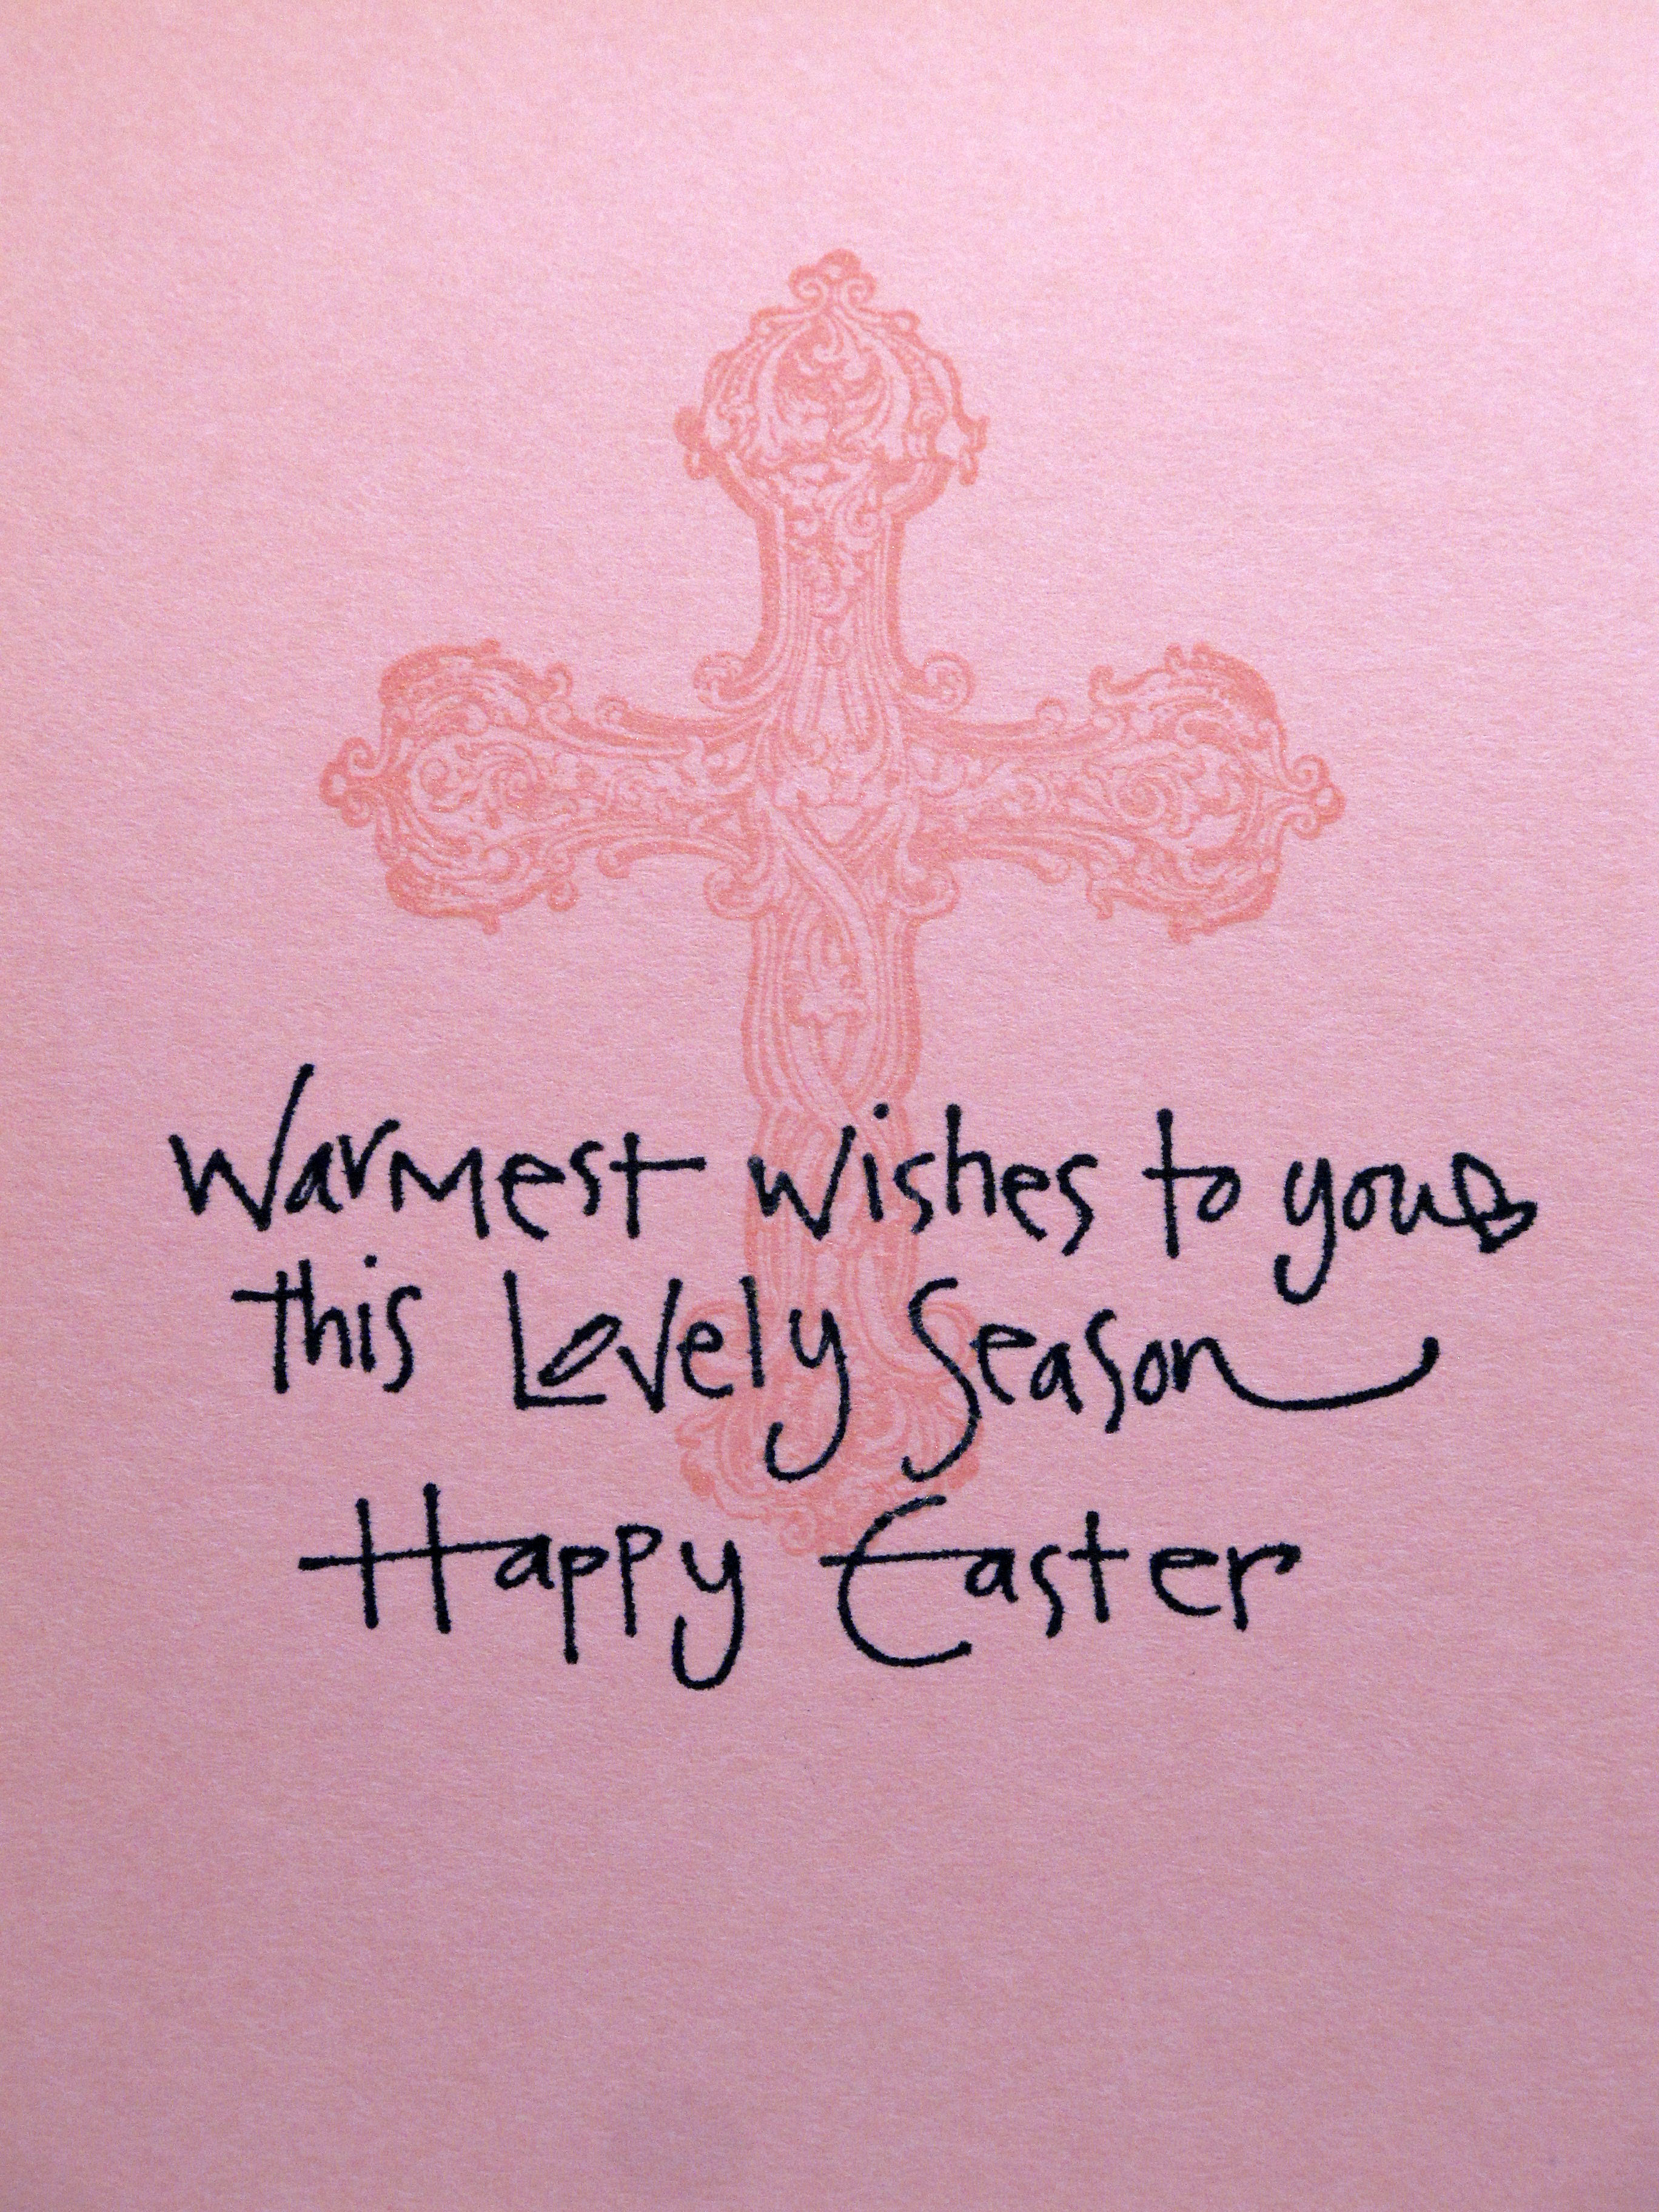 Warmest wishes to you
this Lovely Season
Happy Easter